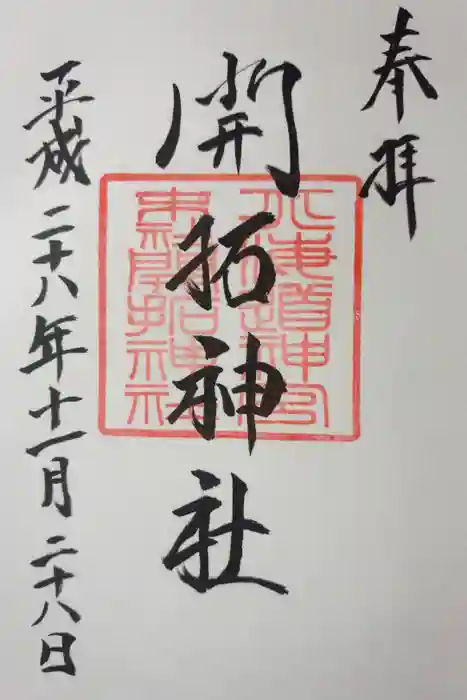 奉拝
開拓神社
平成二十八年十一月二十八日
北海道神宮
末社開拓神社